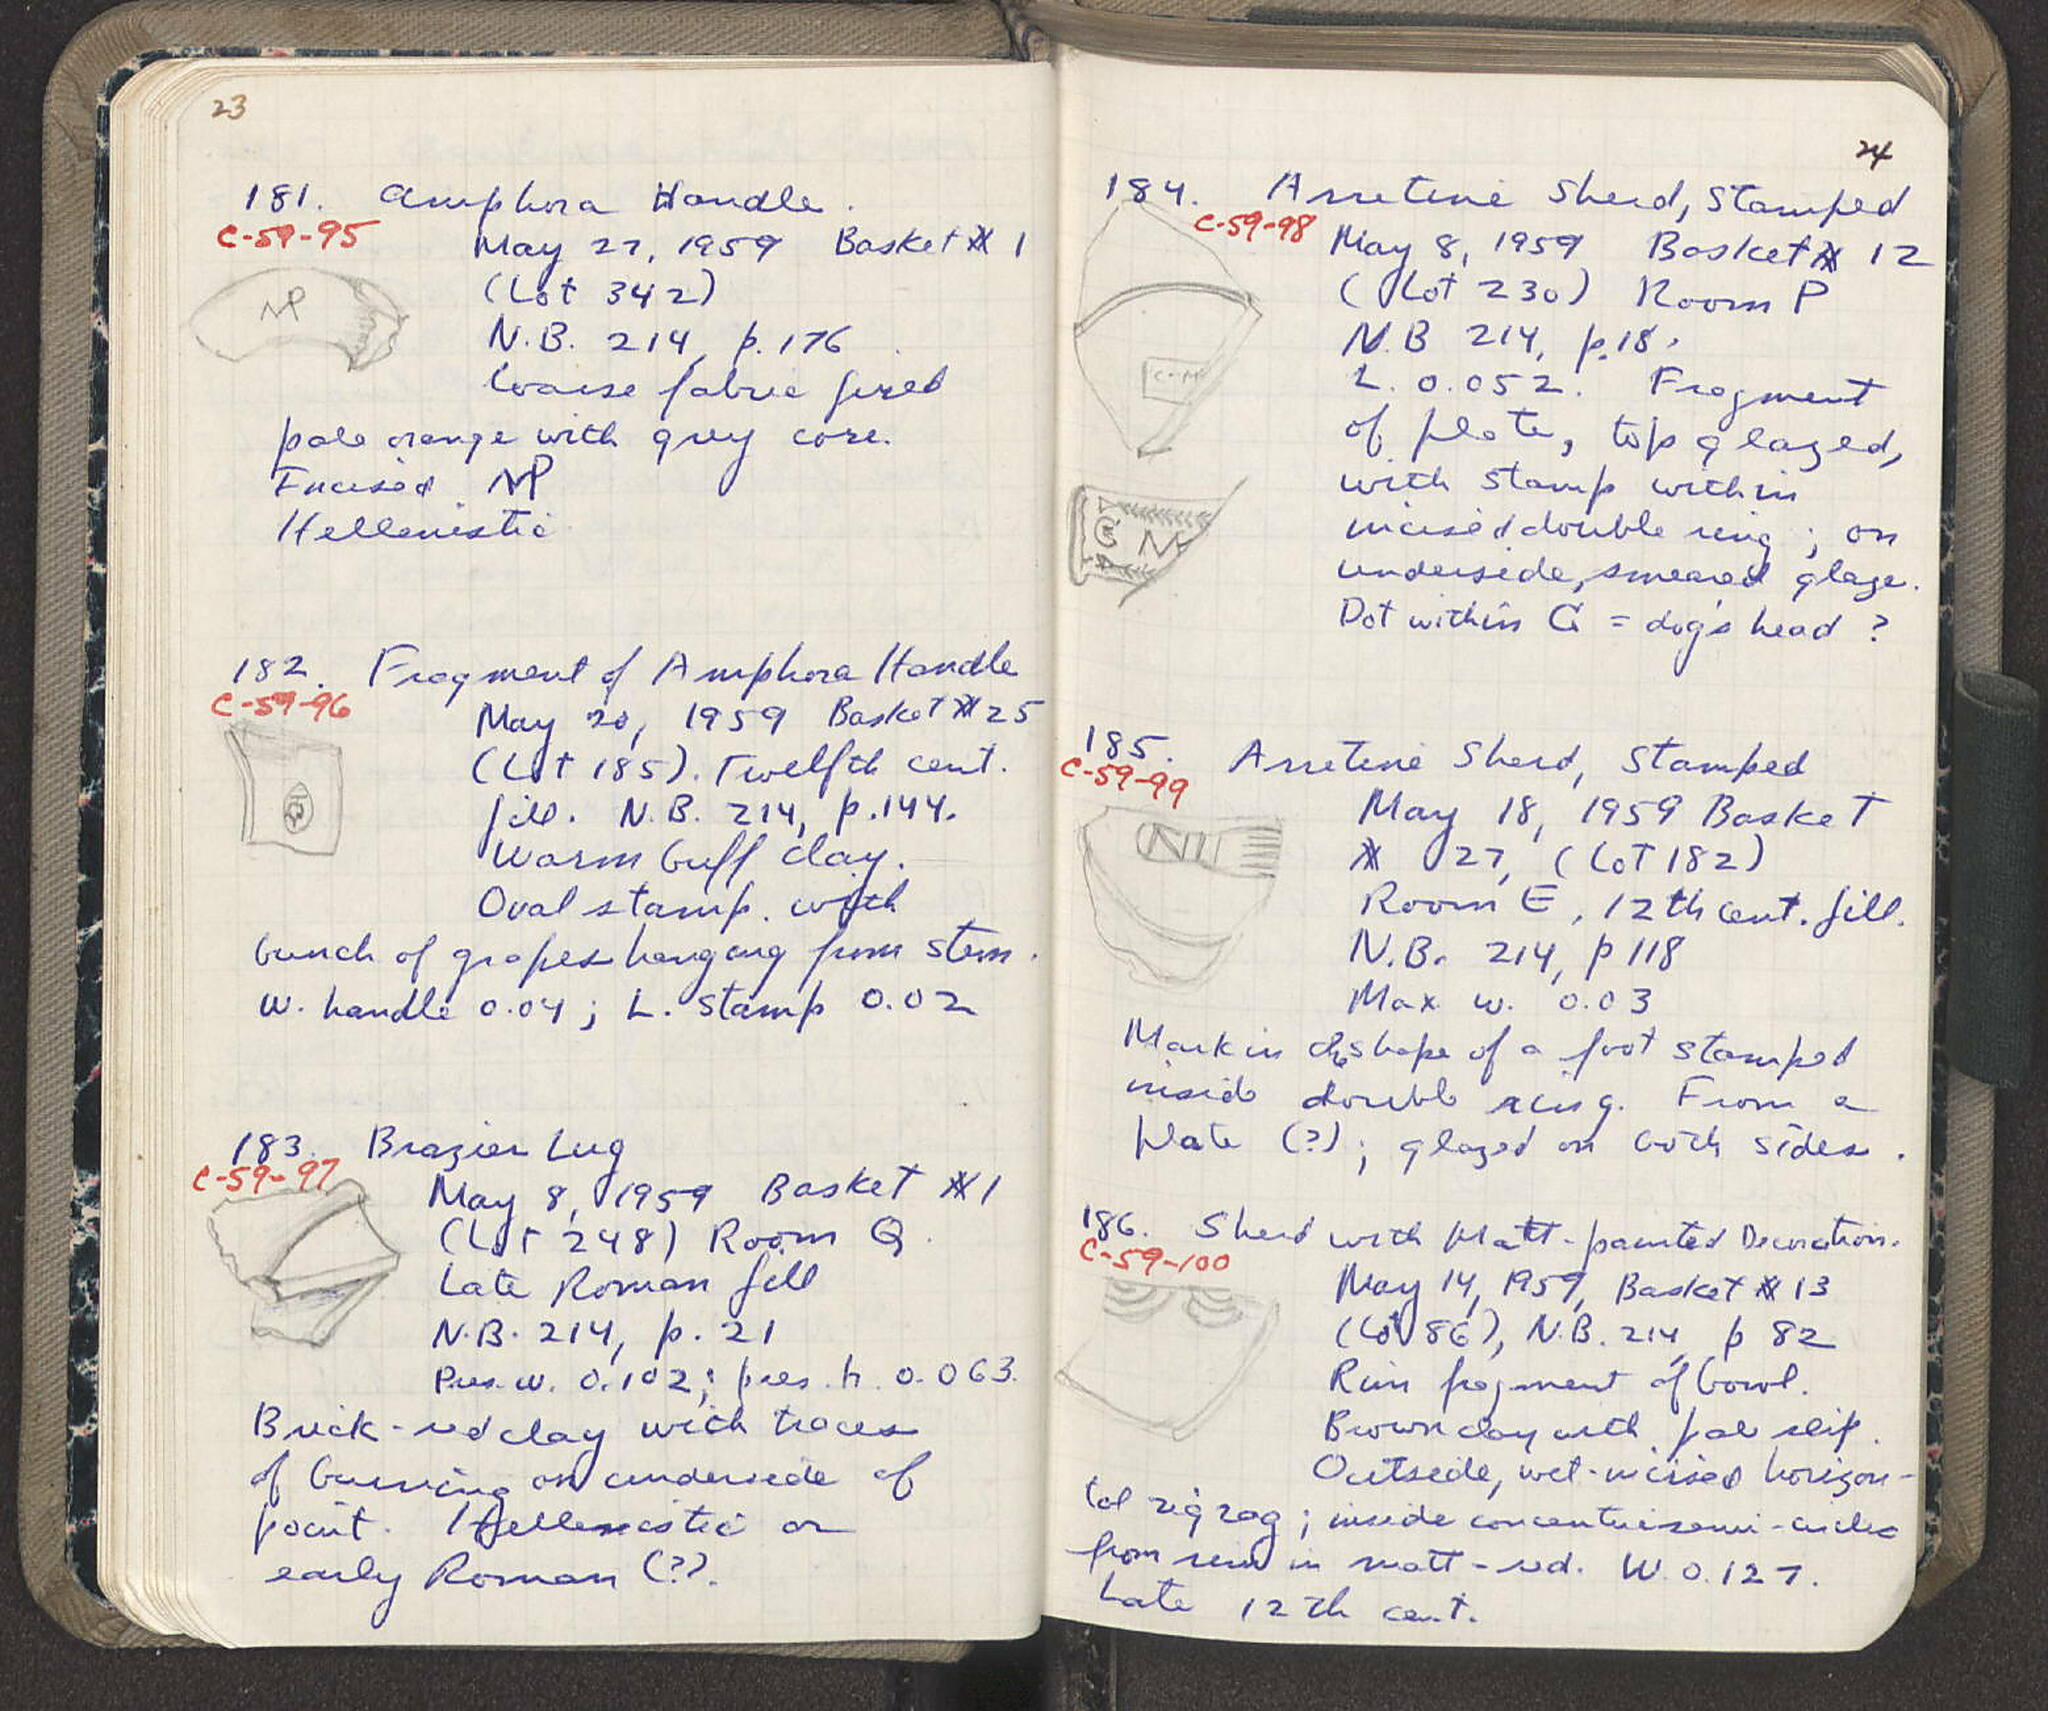 23
181. Amphora Handle.
C-59-95
May 27, 1959 Basket # 1
(Lot 342)
N.B. 214, p. 176
Coarse fabric fired
pale orange with grey core.
Incised
Hellenistic
182. Fragment of Amphora Handle
C-59-96
May 20, 1959 Basket # 25
(Lot 185). Twelfth cent.
fill. N.B. 214, p. 144.
Warm buff clay.
Oval stamp with
bunch of grapes hanging from stem.
W. handle 0.04; L. stamp 0.02
183. Brazier Lug
C-59-97
May 8, 1959 Basket # 1
(Lot 248) Room Q.
Late Roman fill
N.B. 214, p. 21
Pres. w. 0.102; pres. h. 0.063.
Brick-red clay with traces
of burning on underside of
point. Hellenistic or
early Roman (?).
24
184. Arretine Sherd, Stamped
C-59-98
May 8, 1959 Basket # 12
(Lot 230) Room P
N.B 214, p. 18.
L. 0.052. Fragment
of plate, top glazed,
with stamp within
incised double ring; on
underside, smeared glaze.
Dot within G = dog's head ?
185. Arretine Sherd, Stamped
C-59-99
May 18, 1959 Basket
# 27, (Lot 182)
Room E, 12th cent. fill.
N.B. 214, p 118
Max w. 0.03
Mark in the shape of a foot stamped
inside double ring. From a
plate (?); glazed on both sides.
186. Sherd with Matt-painted Decoration.
C-59-100
May 14, 1959, Basket # 13
(Lot 86), N.B. 214, p 82
Rim fragment of bowl.
Brown clay with pale slip.
Outside, wet-incised horizon-
tal zigzag; inside concentric semi-circles
from rim in matt-red. W. 0.127.
Late 12th cent.